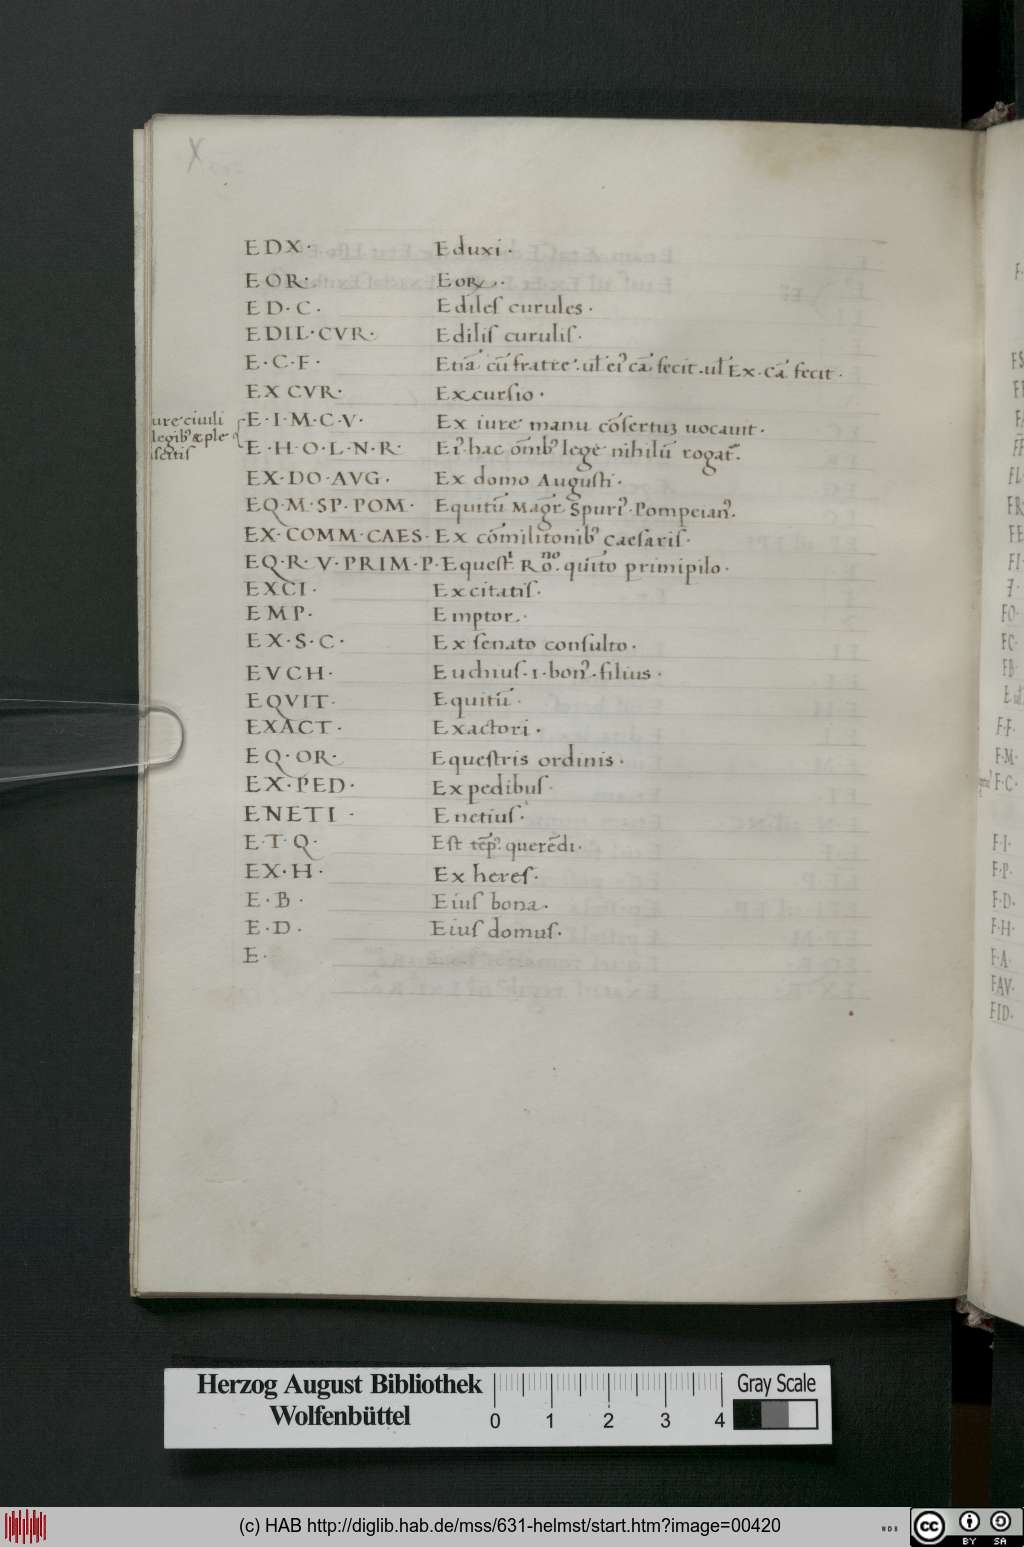 X
EDX· Eduxi·
EOR· Eoꝝ·
ED·C· Edileſ curules·
EDIL·CVR· Ediliſ curuliſ·
E·C·F· Etiā cū fratre·ul̄ eiꝰ cā fecit·ul̄ Ex·cā fecit·
EX CVR· Excurſio·
iure ciuili
legibꝫ & ple
iſcitiſ
E·I·M·C·V· Ex iure manu cōſertuꝫ uocauit·
E·H·O·L·N·R· Eiꝰ·hac om̄ibꝫ lege nihilū rogat̄·
EX·DO·AVG· Ex domo Auguſti·
EQ·M·SP·POM· Equitū Magr̄ Spuriꝰ·Pompeianꝰ.
EX·COMM·CAES· Ex cōmilitonibꝫ Caeſariſ·
EQ·R·V·PRIM·P· Equeſt̄ Ro.no quīto primipilo·
EXCI· Excitatiſ·
EMP· Emptor·
EX·S·C· Ex ſenato conſulto·
EVCH· Euchiuſ·i·bonꝰ·filius·
EQVIT· Equitū·
EXACT· Exactori·
EQ·OR· Equeſtris ordinis·
EX·PED· Ex pedibuſ·
ENETI· Enetiuſ·
E·T·Q· Eſt tēpꝰ querēdi·
EX·H· Ex hereſ·
E·B· Eiuſ bona·
E·D· Eiuſ domuſ·
E·
Herzog August Bibliothek
Wolfenbüttel
0 1 2 3 4
Gray Scale
(c) HAB http://diglib.hab.de/mss/631-helmst/start.htm?image=00420
WDB
cc BY SA